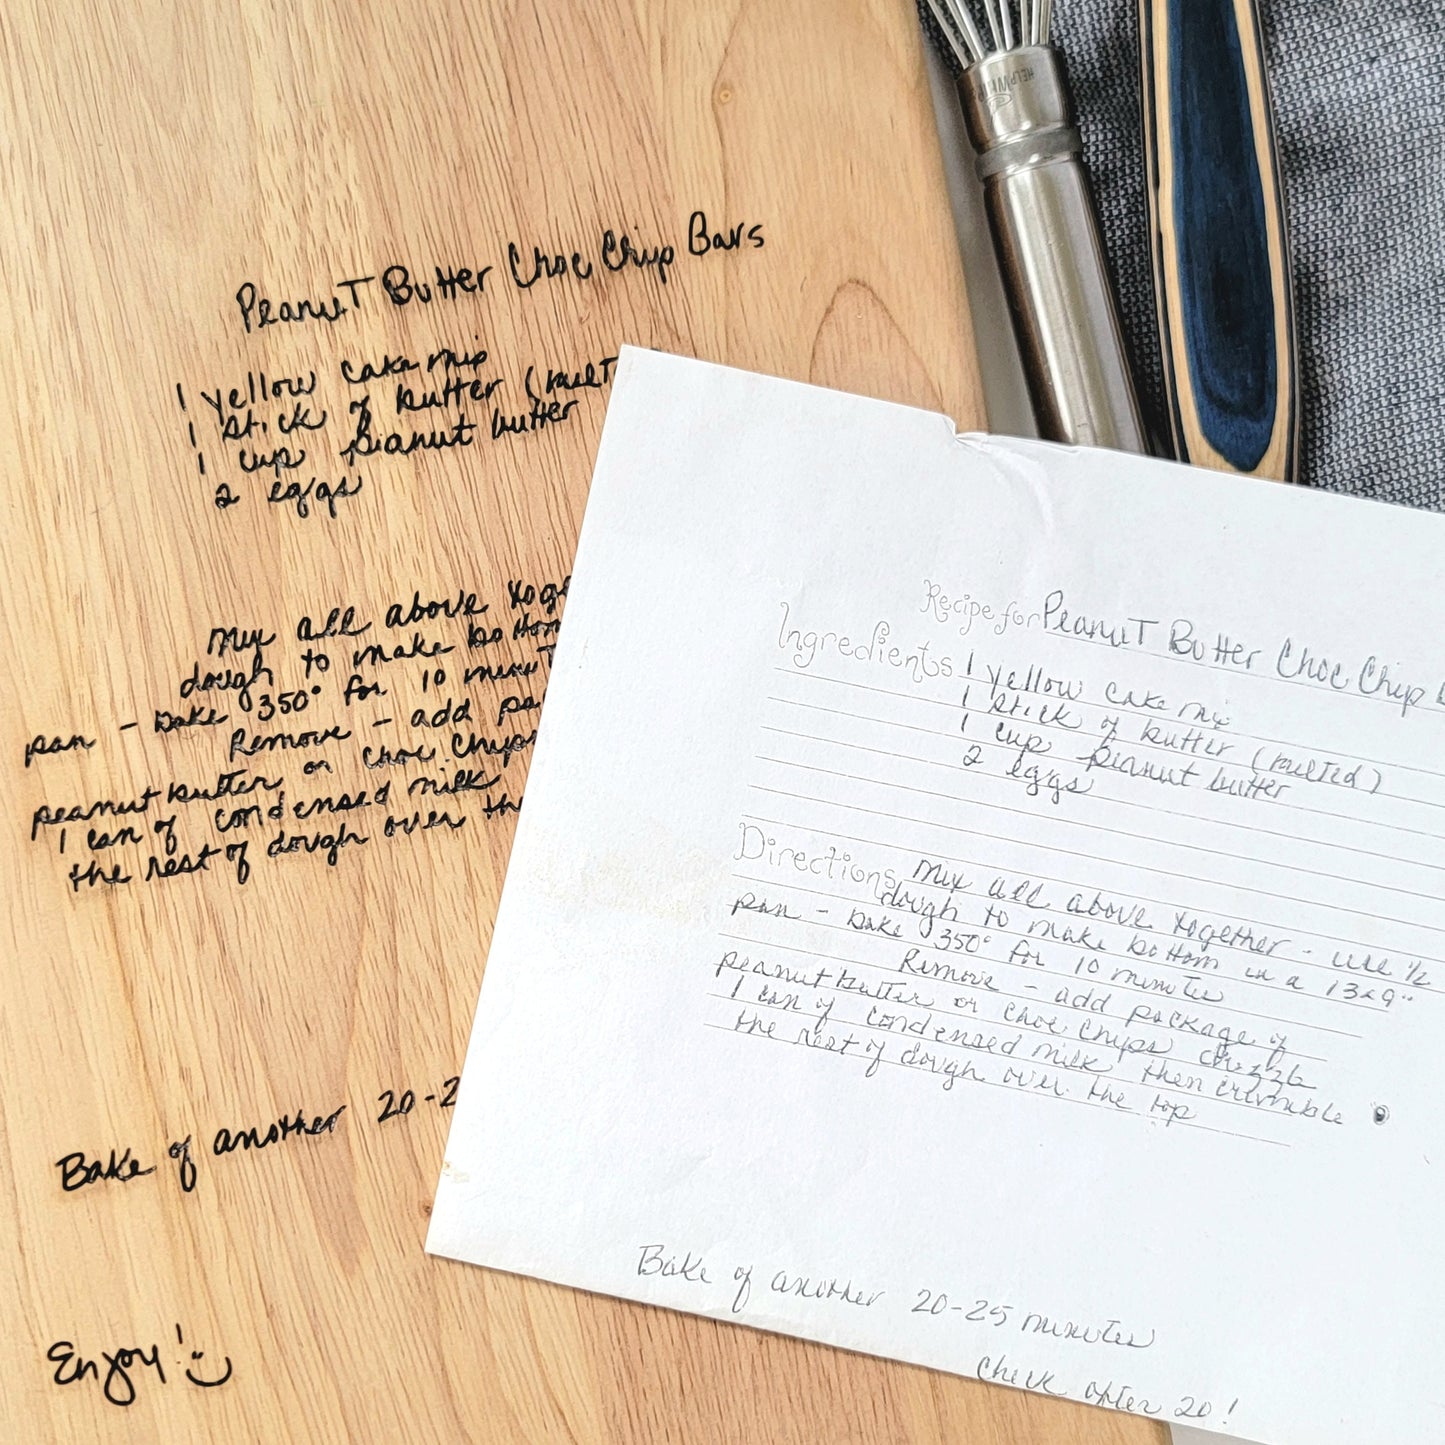 HELPWHIP
Peanut Butter Choc Chip Bars
1 yellow cake mix
1 stick of butter (melt
1 cup peanut butter
2 eggs
Mix all above toge
dough to make bottom
pan - bake 350° for 10 minut
Remove - add pa
peanut butter or choc chips
1 can of condensed milk
the rest of dough over th
Bake of another 20-2
Enjoy!
Recipe for Peanut Butter Choc Chip B
Ingredients 1 yellow cake mix
1 stick of butter (melted)
1 cup peanut butter
2 eggs
Directions Mix all above together - use 1/2
dough to make bottom in a 13x9"
pan - bake 350° for 10 minutes
Remove - add package of
peanut butter or choc chips drizzle
1 can of condensed milk then crumble
the rest of dough over the top
Bake of another 20-25 minutes
Check after 20!